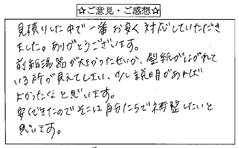 ☆ご意見・ご感想☆
見積りした中で一番お安く対応していただき
ました。ありがとうございます。
前給湯器が大きかったせいか、壁紙がはがれて
いる所が見えてしまい、少し説明があれば
よかったなと思います。
安くできたのでそこは自分たちで補整したいと
思います。